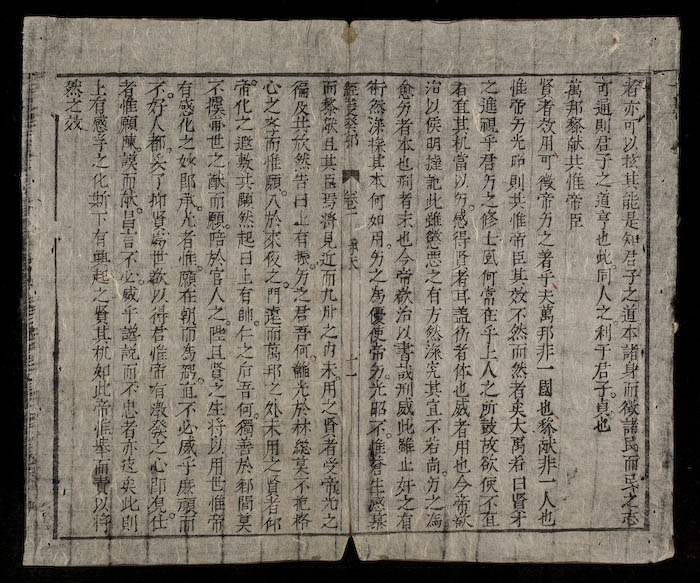 者亦可以核其能是知君子之道本諸身而徵諸民而民之志
可通則君子之道亨也此同人之利于君子貞也
萬邦黎献共惟帝臣
賢者效用可徵帝德之著乎夫萬邦非一國也黎献非一人也
惟帝德光昭則共惟帝臣其效不然而然者矣大禹若曰賢才
之進視乎君德之修士風何常在乎上人之所鼓故欲使不宜
者宜其机當以德感得賢者耳蓋德者体也威者用也今帝欲
治以侯明撻記此雖懲惡之有方然深究其宜不若尚德之為
愈德者本也刑者末也今帝欲治以書哉刑威此雖止奸之有
術然深探其本何如用德之為優使帝德光昭不惟蒼生感慕
經義癸邜 卷一 十一
而黎献且其臣焉將見近而九州之内未用之賢者受帝光之
徧及共欣然告曰上有振德之君吾何韜光於林葱莫不抱格
心之而惟願入於來夜之門遠而萬邦之外未用之賢者仰
帝化之遐敷共顒然起曰上有帥仁之后吾何獨善於鄉閭莫
不摟帝世之猷而願陪於官人之陛且賢之生將以用世惟帝
有感化之妙即承光者惟願在朝而為弼直不必威乎庶頑而
不好人都矣了抑賢為世欲以得君惟帝有激發之心即見仕
者惟願陳謨而献昌言不必威乎讒説而不忠者亦矣此則
上有感孚之化斯下有興起之賢其机如此帝惟舉而責以將
然之效